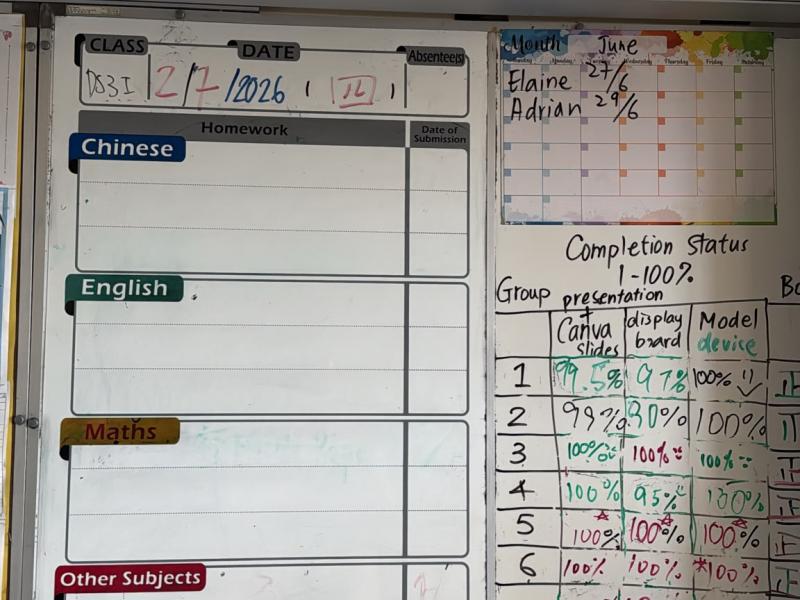 CLASS DATE Absentee(s)
DS3I 2/7/2026
Homework Date of Submission
Chinese
English
Maths
Other Subjects
Month June
Monday Tuesday Wednesday Thursday Friday
Elaine 27/6
Adrian 29/6
Completion Status
1-100%
Group presentation + Canva slides display board Model device
1 99.5% 97% 100%
2 99% 90% 100%
3 100% 100% 100%
4 100% 95% 100%
5 100% 100% 100%
6 100% 100% *100%